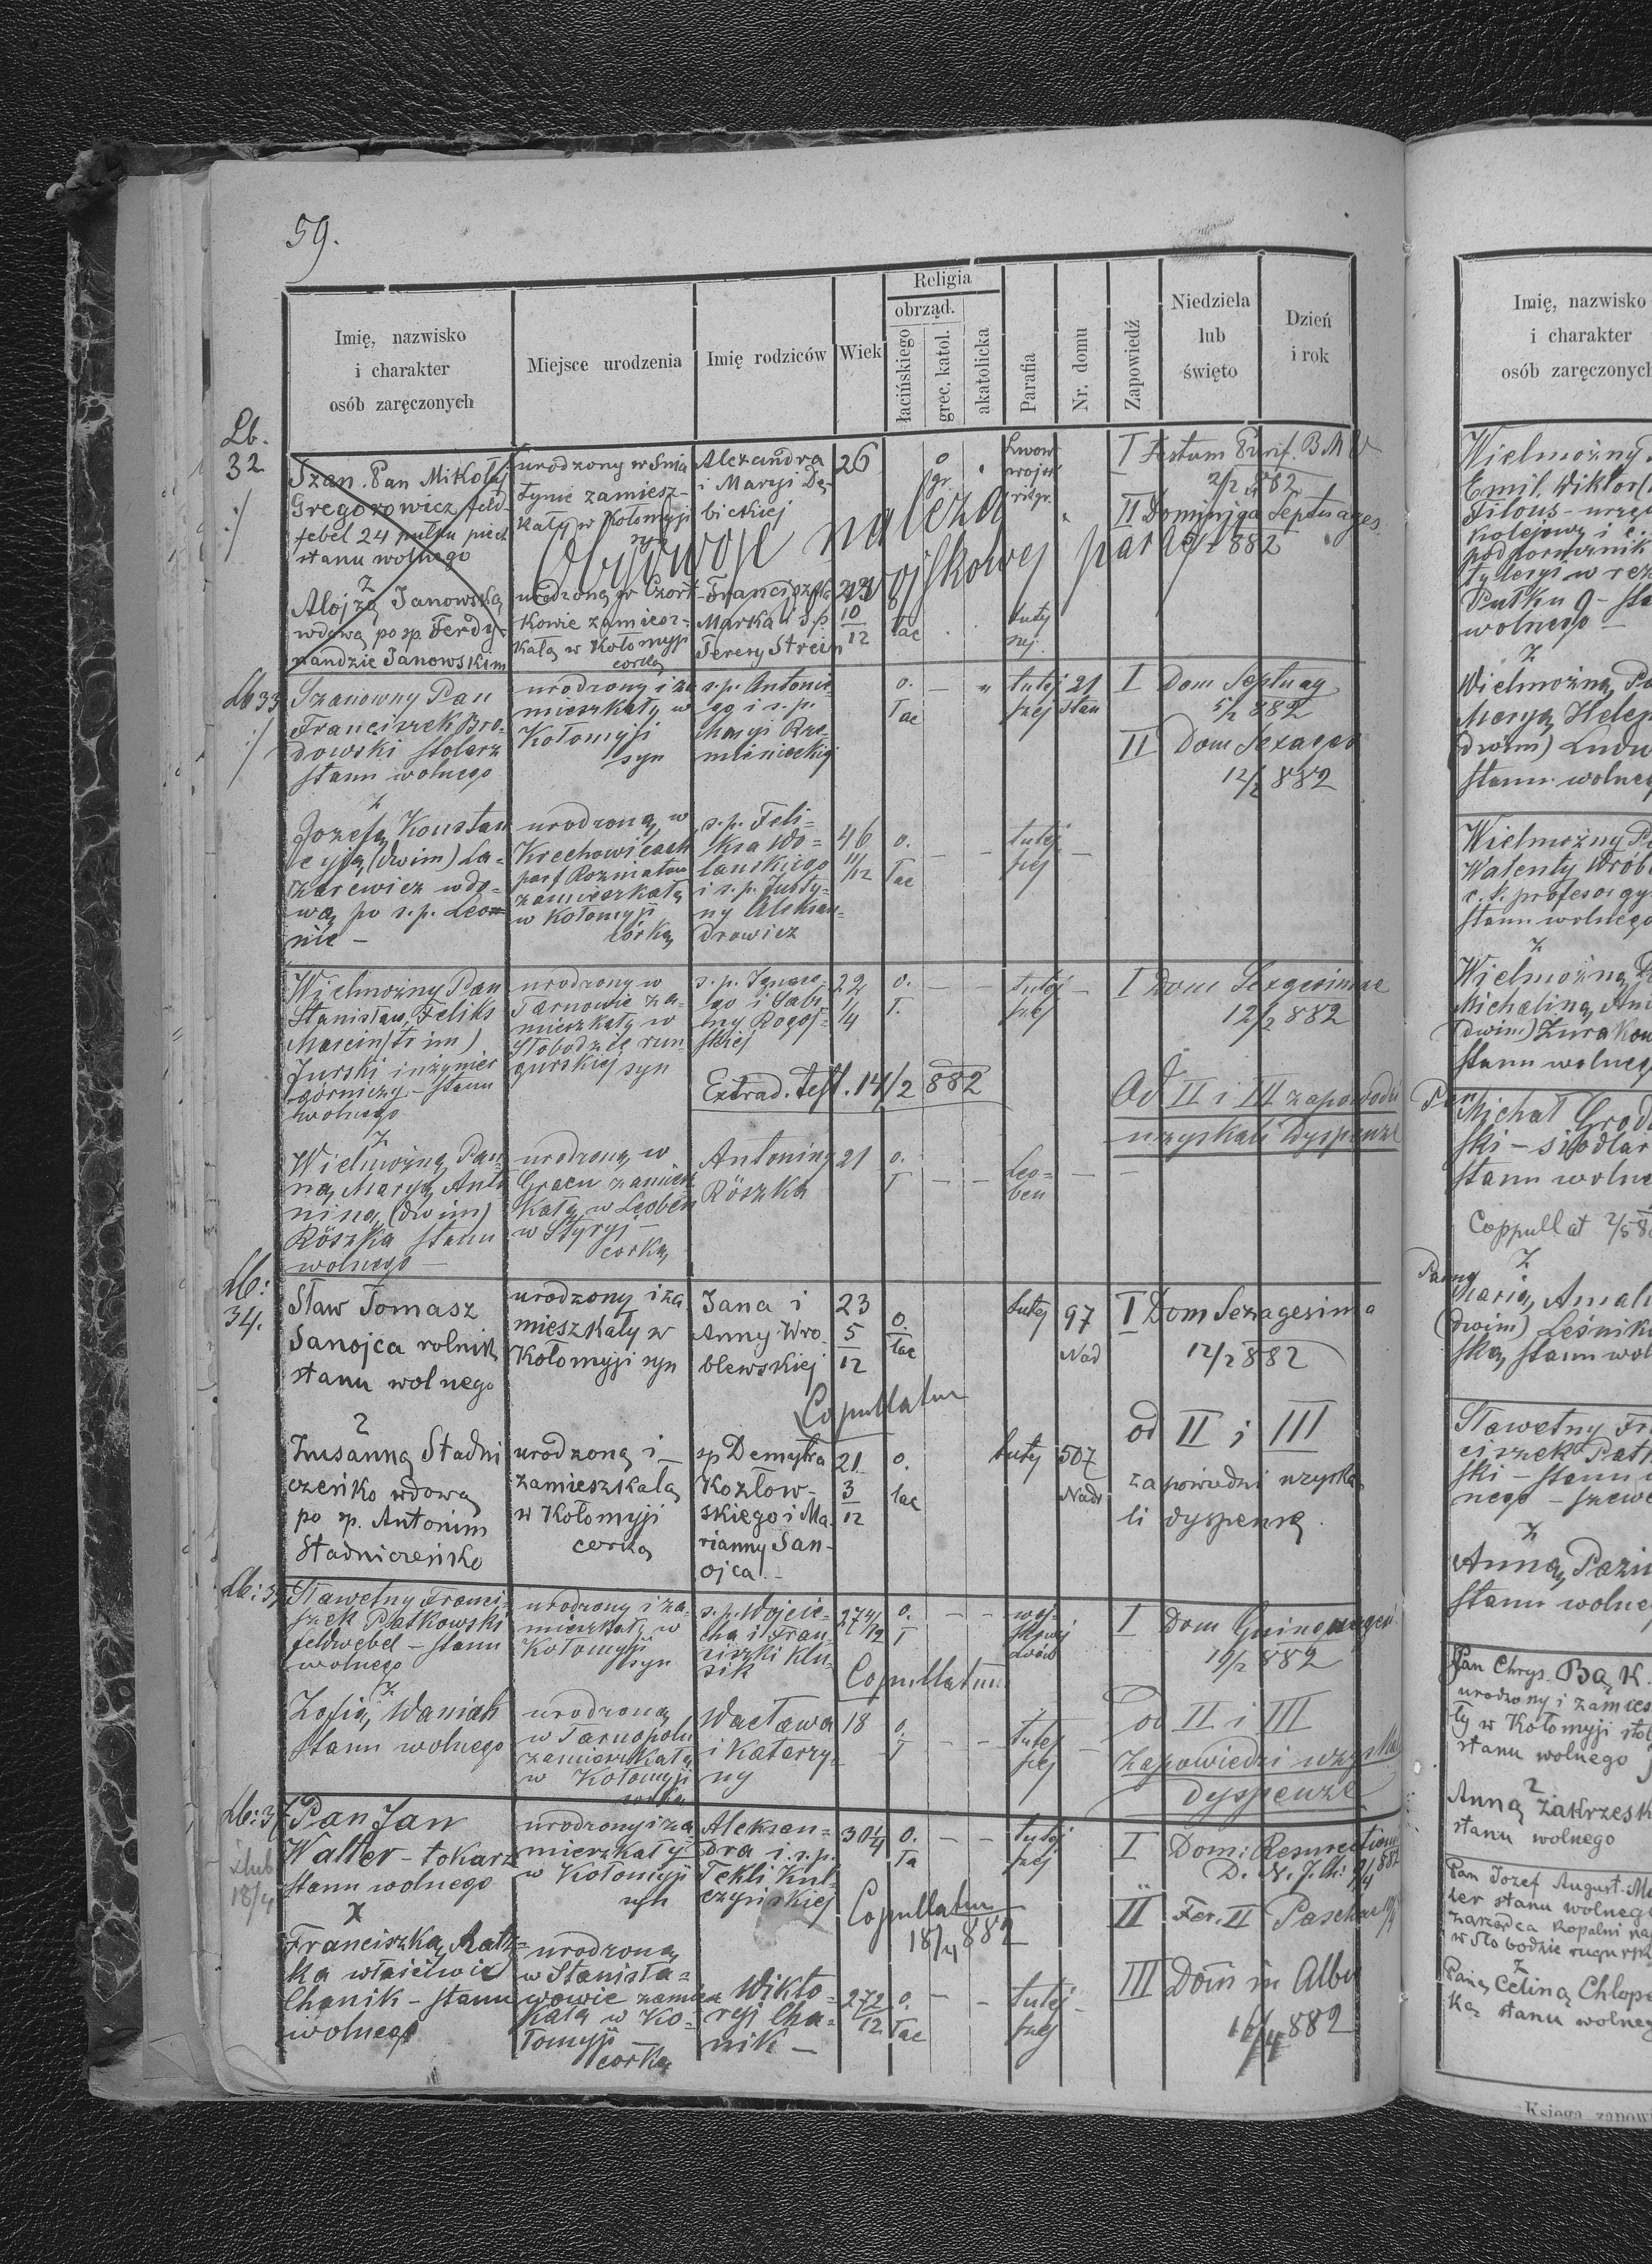 59.
Imię, nazwisko
i charakter
osób zaręczonych
Miejsce urodzenia
Imię rodziców
Wiek
Religia
obrząd.
łacińskiego
grec. katol.
akatolicka
Parafia
Nr. domu
Zapowiedź
Niedziela
lub
święto
Dzień
i rok
Lb.
32
Szan. Pan Mikołaj
Gregorowicz feld-
febel 24 pułku piech
stanu wolnego
z
Alojzą Janowską
wdową po sp. Ferdy-
nandzie Janowskim
urodzony w Snia
tynie zamiesz-
kały w Kołomyji
syn
urodzoną w Czort-
kowie zamiesz-
kałą w Kołomyji
corką
Alexandra
i Maryi Dę-
bickiej
Franciszka
Marka i s.p.
Teresy Strein
26
23
10
12
o
gr.
łac
Lwow
wojsk
tutej
szej
I Festum Purif. B M V
2/2 882
II Dominica Septuages
5/2 882
Obydwoje należą
wojskowej parafii
Lb 33
Szanowny Pan
Franciszek Bro-
dowski stolarz
stanu wolnego
z
Jozefą Konstan
cyją (dwim) La-
zarewicz wdo-
wą po s.p. Leon
nie -
urodzony i za
mieszkały w
Kołomyji
syn
urodzoną w
Krechowicach
par Rozniatow
zamieszkałą
w Kołomyji
córką
s.p. Antonie
go i s.p.
Maryi Rze-
mieniecki
s.p. Feli-
ksa Wo-
lanskiego
i s.p. Justy-
ny Aleksan-
drowicz
46
11/12
o.
łac
o.
łac
tutej
szej
tutej
szej
21
Stan
I Dom Septuag
5/2 882
II Dom Sexages
12/2 882
Wielmożny Pan
Stanisław, Feliks
Marcin (trim)
Jurski inżynier
górniczy - stanu
wolnego
z
Wielmożną Pan-
ną Maryą Anto
niną (dwim)
Röszka stanu
wolnego -
urodzony w
Tarnowie za-
mieszkały w
Słobodzie run-
gurskiej syn
urodzoną w
Gracu zamiesz
kałą w Leoben
w Styryi -
corką
s.p. Ignace-
go i Sabi-
ny Rogoj-
skiej
Extrad. test. 14/2 882
Antoniny
Röszka
22
1/4
21
o.
ł.
o.
ł
tutej
szej
Leo-
ben
I Dom Sexgesimae
12/2 882
Od II i III zapowiedzi
uzyskali Dyspenze
Lb:
34.
Sław Tomasz
Sanojca rolnik
stanu wolnego
z
Zusanną Stadni
czeńko wdową
po sp. Antonim
Stadniczeńko
urodzony i za
mieszkały w
Kołomyji syn
urodzoną i
zamieszkałą
w Kołomyji
corką
Jana i
Anny Wro-
blewskiej
Copullatur
sp Demytra
Kozłow-
skiego i Ma-
rianny San-
ojca.-
23
5
12
21
3
12
o.
łac
o.
łac
tutej
tutej
97
Nad
507
Nadw
I Dom Sexagesima
12/2 882
od II i III
zapowiedzi uzyska
li dyspenzą.
Sławetny Franci-
szek Patkowski
feldwebel - stanu
wolnego
z
Zofią Waniak
stanu wolnego
urodzony i za-
mieszkały w
Kołomyji
syn
urodzoną
w Tarnopolu
zamieszkałą
w Kołomyji
corką
s.p. Wojcie-
cha i Fran-
ciszki Klu-
sik
Copullatum
Wacława
i Katarzy-
ny
27
18
o.
ł
o.
ł
tutej
szej
I Dom Quinquages
19/2 882
od II i III
zapowiedzi uzyskal
dyspenze
ślub
18/4
Pan Jan
Walter - tokarz
stanu wolnego
x
Franciszką
ka właściwie
Chanik - stanu
wolnego
urodzony i za
mieszkały
w Kołomyji
syn
urodzoną
w Stanisła-
wowie zamiesz
kałą w Ko-
łomyji
corką
Aleksan-
dra i s.p.
Tekli Kul-
czynskiej
Copullatur
18/4 882
Wikto-
ryi Cha-
nik -
30 1/4
27 2/12
o.
ła
o.
łac
tutej
szej
tutej
szej
I Dom: Resurectionis
D. N. J. Ch: 9/4 882
II Fer. II Paschae
III Dom in Albis
16/4 882
Imię, nazwisko
i charakter
osób zaręczonych
Emil, Wiktor
kolejowy i
wolnego
z
Wielmożną
Maryą Helen
(dwim) Ludw
stanu wolneg
Walenty Wrób
c. k. profesor gy
stanu wolnego
z
Wielmożną
Michaliną
(dwim) Zurakow
stanu wolneg
Pan
Michał Grod
ski - siodlar
stanu wolne
Coppullat
z
Panną
Marią, Amali
(dwim) Leśnik
ską stanu wol
Sławetny Fr
ciszek Patk
ski - stanu w
nego - szewc
z
Anną Pazi
stanu wolne
Pan Chrys. Bąk
urodzony i zamies
ły w Kołomyji stol
stanu wolnego
z
Anną Zakrzesk
stanu wolnego
Pan Jozef August. Mo
ler stanu wolnego
zarządca kopalni na
w Słobodzie rungursk
z
Paną Celiną Chłop
ką stanu wolneg
Księga zapowi